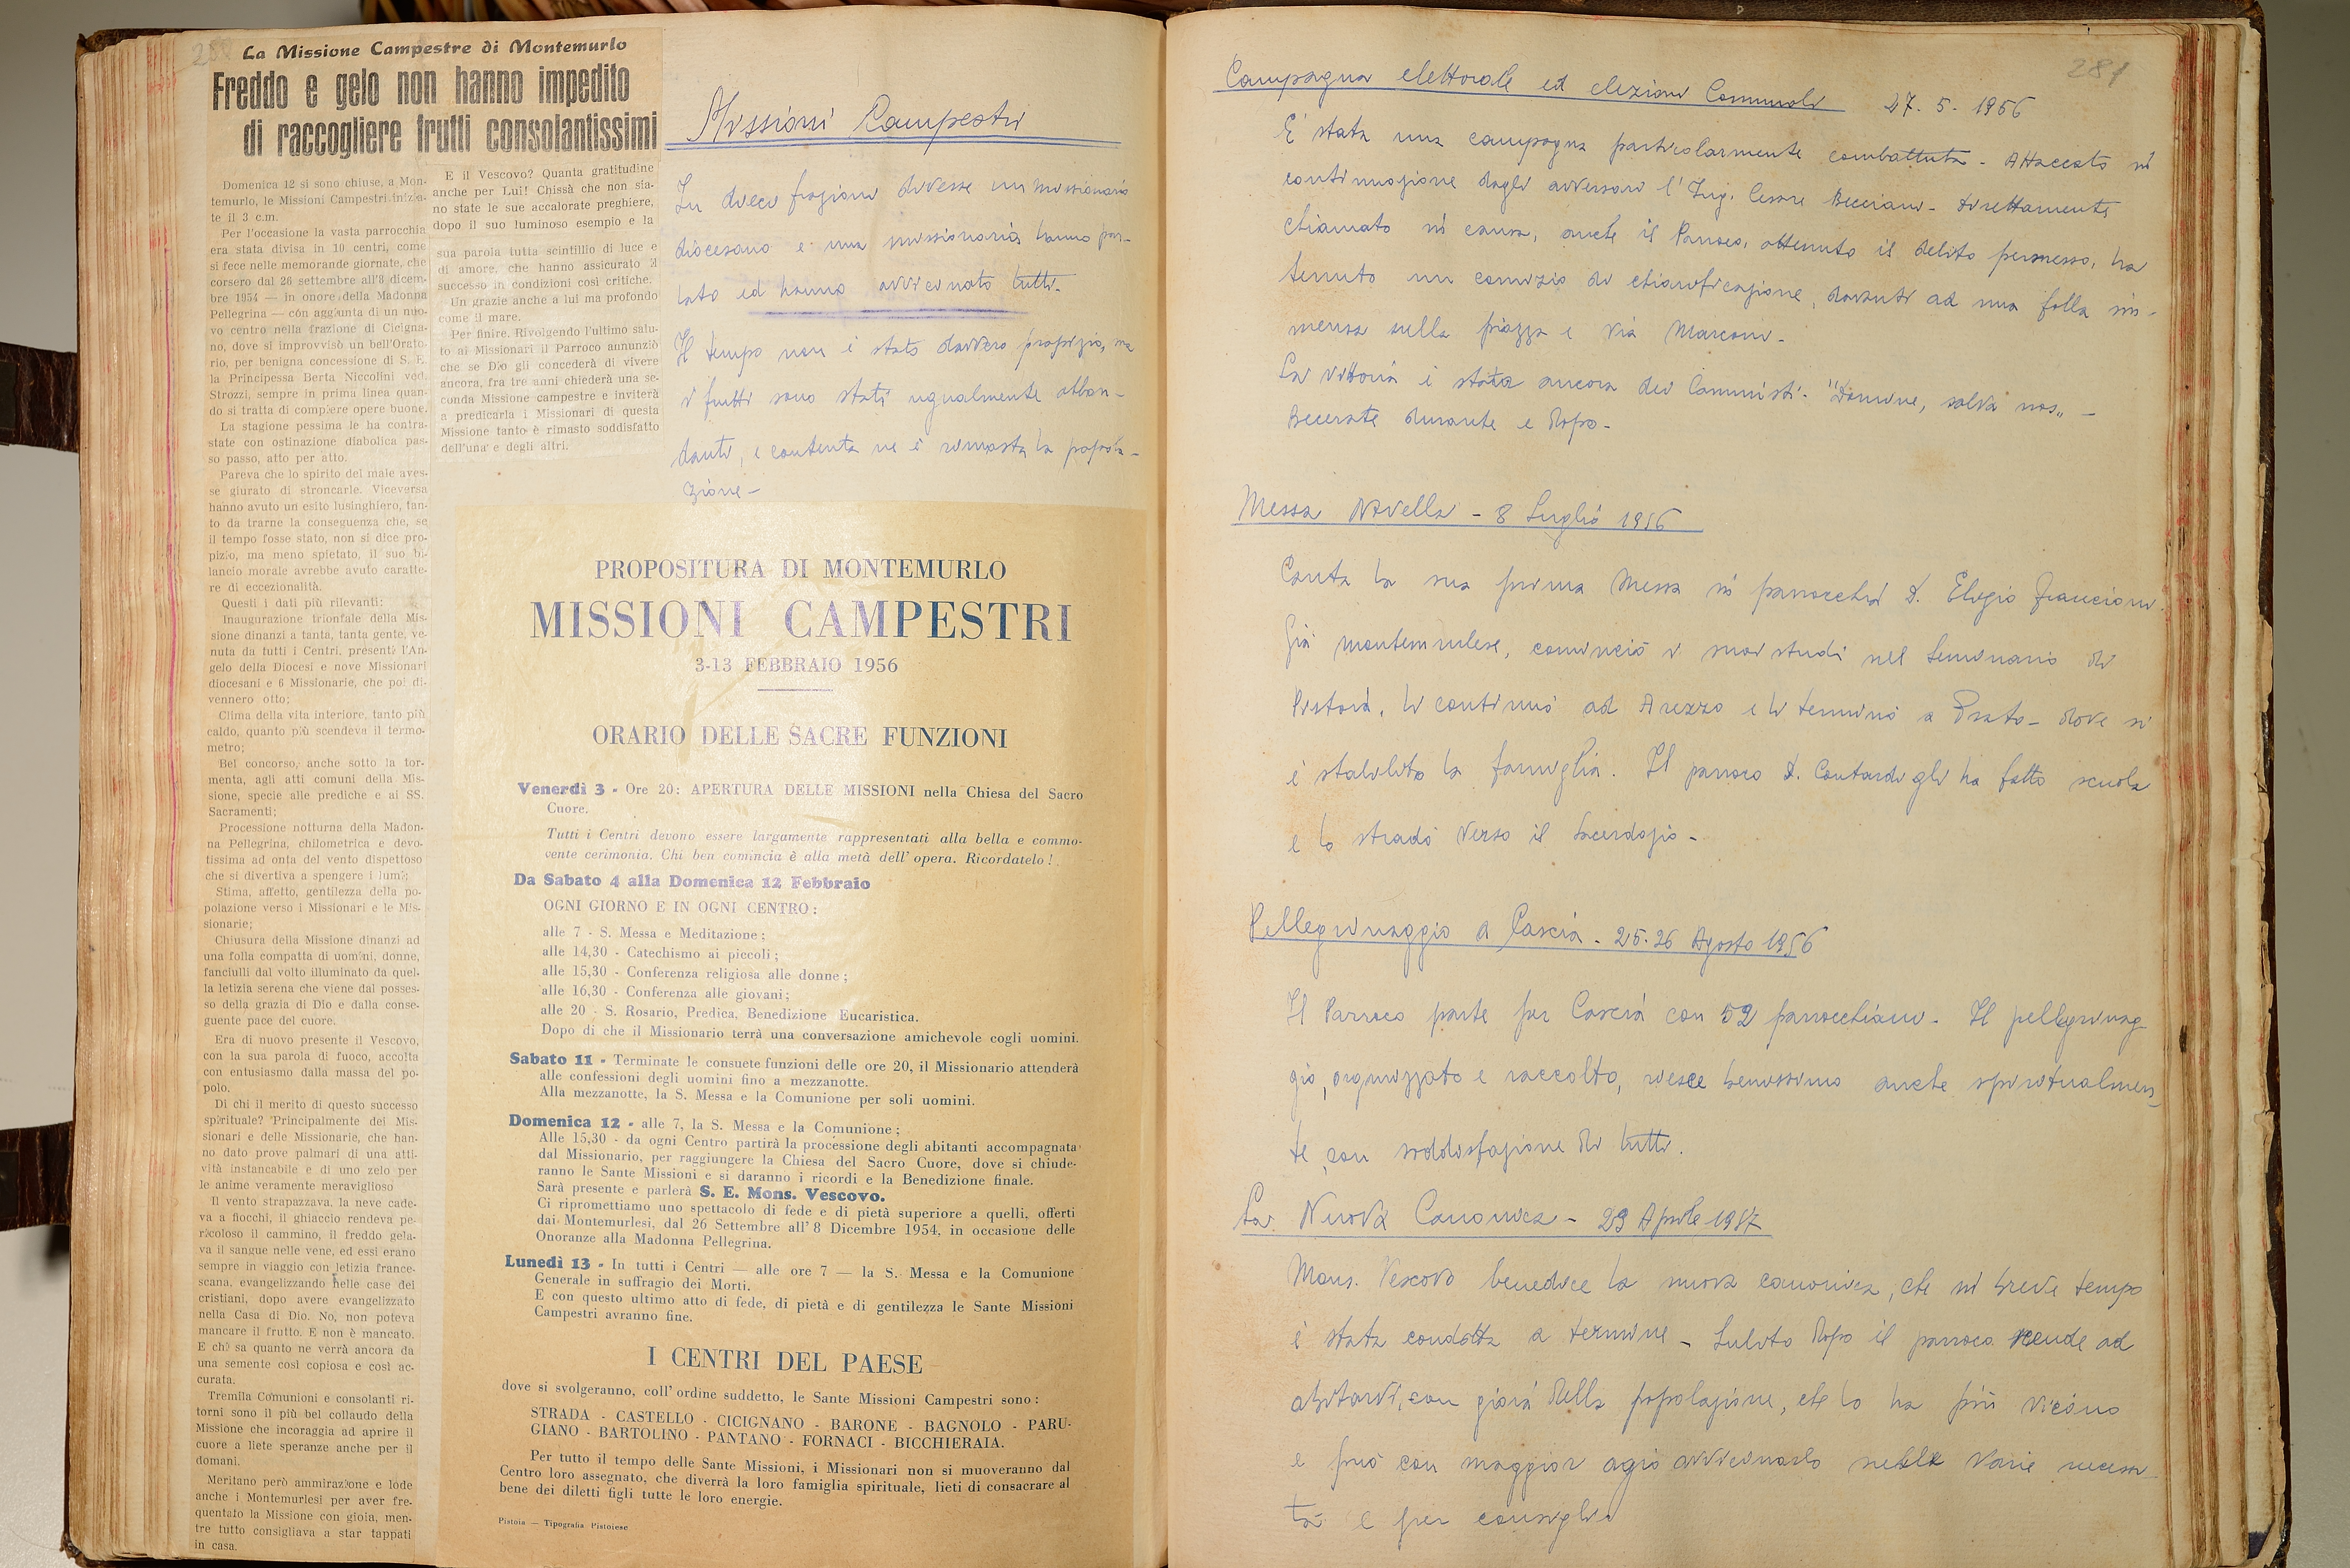 La Missione Campestre di Montemurlo
Freddo e gelo non hanno impedito
di raccogliere frutti consolantissimi
Domenica 12 si sono chiuse, a Mon-
temurlo, le Missioni Campestri inizia-
te il 3 c.m.
Per l'occasione la vasta parrocchia
era stata divisa in 10 centri, come
si fece nelle memorande giornate, che
corsero dal 26 settembre all'8 dicem-
bre 1954 — in onore della Madonna
Pellegrina — con aggiunta di un nuo-
vo centro nella frazione di Cicigna-
no, dove si improvvisò un bell'Orato-
rio, per benigna concessione di S. E.
la Principessa Berta Niccolini ved.
Strozzi, sempre in prima linea quan-
do si tratta di compiere opere buone.
La stagione pessima le ha contra-
state con ostinazione diabolica pas-
so passo, atto per atto.
Pareva che lo spirito del male aves-
se giurato di stroncarle. Viceversa
hanno avuto un esito lusinghiero, tan-
to da trarne la conseguenza che, se
il tempo fosse stato, non si dice pro-
pizio, ma meno spietato, il suo bi-
lancio morale avrebbe avuto caratte-
re di eccezionalità.
Questi i dati più rilevanti:
Inaugurazione trionfale della Mis-
sione dinanzi a tanta, tanta gente, ve-
nuta da tutti i Centri, presenti l'An-
gelo della Diocesi e nove Missionari
diocesani e 6 Missionarie, che poi di-
vennero otto;
Clima della vita interiore, tanto più
caldo, quanto più scendeva il termo-
metro;
Bel concorso, anche sotto la tor-
menta, agli atti comuni della Mis-
sione, specie alle prediche e ai SS.
Sacramenti;
Processione notturna della Madon-
na Pellegrina, chilometrica e devo-
tissima ad onta del vento dispettoso
che si divertiva a spengere i lumi;
Stima, affetto, gentilezza della po-
polazione verso i Missionari e le Mis-
sionarie;
Chiusura della Missione dinanzi ad
una folla compatta di uomini, donne,
fanciulli dal volto illuminato da quel-
la letizia serena che viene dal posses-
so della grazia di Dio e dalla conse-
guente pace del cuore.
Era di nuovo presente il Vescovo,
con la sua parola di fuoco, accolta
con entusiasmo dalla massa del po-
polo.
Di chi il merito di questo successo
spirituale? Principalmente dei Mis-
sionari e delle Missionarie, che han-
no dato prove palmari di una atti-
vità instancabile e di uno zelo per
le anime veramente meraviglioso
Il vento strapazzava, la neve cade-
va a fiocchi, il ghiaccio rendeva pe-
ricoloso il cammino, il freddo gela-
va il sangue nelle vene, ed essi erano
sempre in viaggio con letizia france-
scana, evangelizzando nelle case dei
cristiani, dopo avere evangelizzato
nella Casa di Dio. No, non poteva
mancare il frutto. E non è mancato.
E chi sa quanto ne verrà ancora da
una semente così copiosa e così ac-
curata.
Tremila Comunioni e consolanti ri-
torni sono il più bel collaudo della
Missione che incoraggia ad aprire il
cuore a liete speranze anche per il
domani.
Meritano però ammirazione e lode
anche i Montemurlesi per aver fre-
quentato la Missione con gioia, men-
tre tutto consigliava a star tappati
in casa.
E il Vescovo? Quanta gratitudine
anche per Lui! Chissà che non sia-
no state le sue accalorate preghiere,
dopo il suo luminoso esempio e la
sua parola tutta scintillio di luce e
di amore, che hanno assicurato il
successo in condizioni così critiche.
Un grazie anche a lui ma profondo
come il mare.
Per finire. Rivolgendo l'ultimo salu-
to ai Missionari il Parroco annunziò
che se Dio gli concederà di vivere
ancora, fra tre anni chiederà una se-
conda Missione campestre e inviterà
a predicarla i Missionari di questa
Missione tanto è rimasto soddisfatto
dell'una e degli altri.
Missioni Campestri
In dieci frazioni diverse un missionario
diocesano e una missionaria hanno par-
lato ed hanno avvicinato tutti.
Il tempo non è stato davvero propizio, ma
i frutti sono stati ugualmente abbon-
danti, e contenta ne è rimasta la popola-
zione -
PROPOSITURA DI MONTEMURLO
MISSIONI CAMPESTRI
3-13 FEBBRAIO 1956
ORARIO DELLE SACRE FUNZIONI
Venerdì 3 - Ore 20: APERTURA DELLE MISSIONI nella Chiesa del Sacro
Cuore.
Tutti i Centri devono essere largamente rappresentati alla bella e commo-
vente cerimonia. Chi ben comincia è alla metà dell'opera. Ricordatelo!
Da Sabato 4 alla Domenica 12 Febbraio
OGNI GIORNO E IN OGNI CENTRO:
alle 7 - S. Messa e Meditazione;
alle 14,30 - Catechismo ai piccoli;
alle 15,30 - Conferenza religiosa alle donne;
alle 16,30 - Conferenza alle giovani;
alle 20 - S. Rosario, Predica, Benedizione Eucaristica.
Dopo di che il Missionario terrà una conversazione amichevole cogli uomini.
Sabato 11 - Terminate le consuete funzioni delle ore 20, il Missionario attenderà
alle confessioni degli uomini fino a mezzanotte.
Alla mezzanotte, la S. Messa e la Comunione per soli uomini.
Domenica 12 - alle 7, la S. Messa e la Comunione;
Alle 15,30 - da ogni Centro partirà la processione degli abitanti accompagnata
dal Missionario, per raggiungere la Chiesa del Sacro Cuore, dove si chiude-
ranno le Sante Missioni e si daranno i ricordi e la Benedizione finale.
Sarà presente e parlerà S. E. Mons. Vescovo.
Ci ripromettiamo uno spettacolo di fede e di pietà superiore a quelli, offerti
dai Montemurlesi, dal 26 Settembre all'8 Dicembre 1954, in occasione delle
Onoranze alla Madonna Pellegrina.
Lunedì 13 - In tutti i Centri — alle ore 7 — la S. Messa e la Comunione
Generale in suffragio dei Morti.
E con questo ultimo atto di fede, di pietà e di gentilezza le Sante Missioni
Campestri avranno fine.
I CENTRI DEL PAESE
dove si svolgeranno, coll'ordine suddetto, le Sante Missioni Campestri sono:
STRADA - CASTELLO - CICIGNANO - BARONE - BAGNOLO - PARU-
GIANO - BARTOLINO - PANTANO - FORNACI - BICCHIERAIA.
Per tutto il tempo delle Sante Missioni, i Missionari non si muoveranno dal
Centro loro assegnato, che diverrà la loro famiglia spirituale, lieti di consacrare al
bene dei diletti figli tutte le loro energie.
Pistoia — Tipografia Pistoiese
281
Campagna elettorale ed elezioni Comunali 27. 5. 1956
E' stata una campagna particolarmente combattuta - Attaccato in
continuazione dagli avversari l'Ing. Cesare Becciani - direttamente
chiamato in causa, anche il Parroco, ottenuto il debito permesso, ha
tenuto un comizio di chiarificazione, davanti ad una folla im-
mensa sulla piazza e via Marconi -
La vittoria è stata ancora dei Comunisti. "Domine, salva nos" -
Becerate durante e dopo -
Messa Novella - 8 Luglio 1956
Canta la sua prima Messa in parrocchia D. Eligio Francioni.
Già montemurlese, cominciò i suoi studi nel Seminario di
Pistoia, li continuò ad Arezzo e li terminò a Prato - dove si
è stabilita la famiglia. Il parroco D. Contardi gli ha fatto scuola
e lo stradò verso il Sacerdozio -
Pellegrinaggio a Cascia - 25-26 Agosto 1956
Il Parroco parte per Cascia con 52 parrocchiani - Il pellegrinag-
gio, organizzato e raccolto, riesce benissimo anche spiritualmen-
te, con soddisfazione di tutti.
La Nuova Canonica - 29 Aprile 1957
Mons. Vescovo benedice la nuova canonica, che in breve tempo
è stata condotta a termine - Subito dopo il parroco scende ad
abitarvi, con gioia della popolazione, che lo ha più vicino
e può con maggior agio avvicinarlo nelle varie necessi-
tà e per consiglio